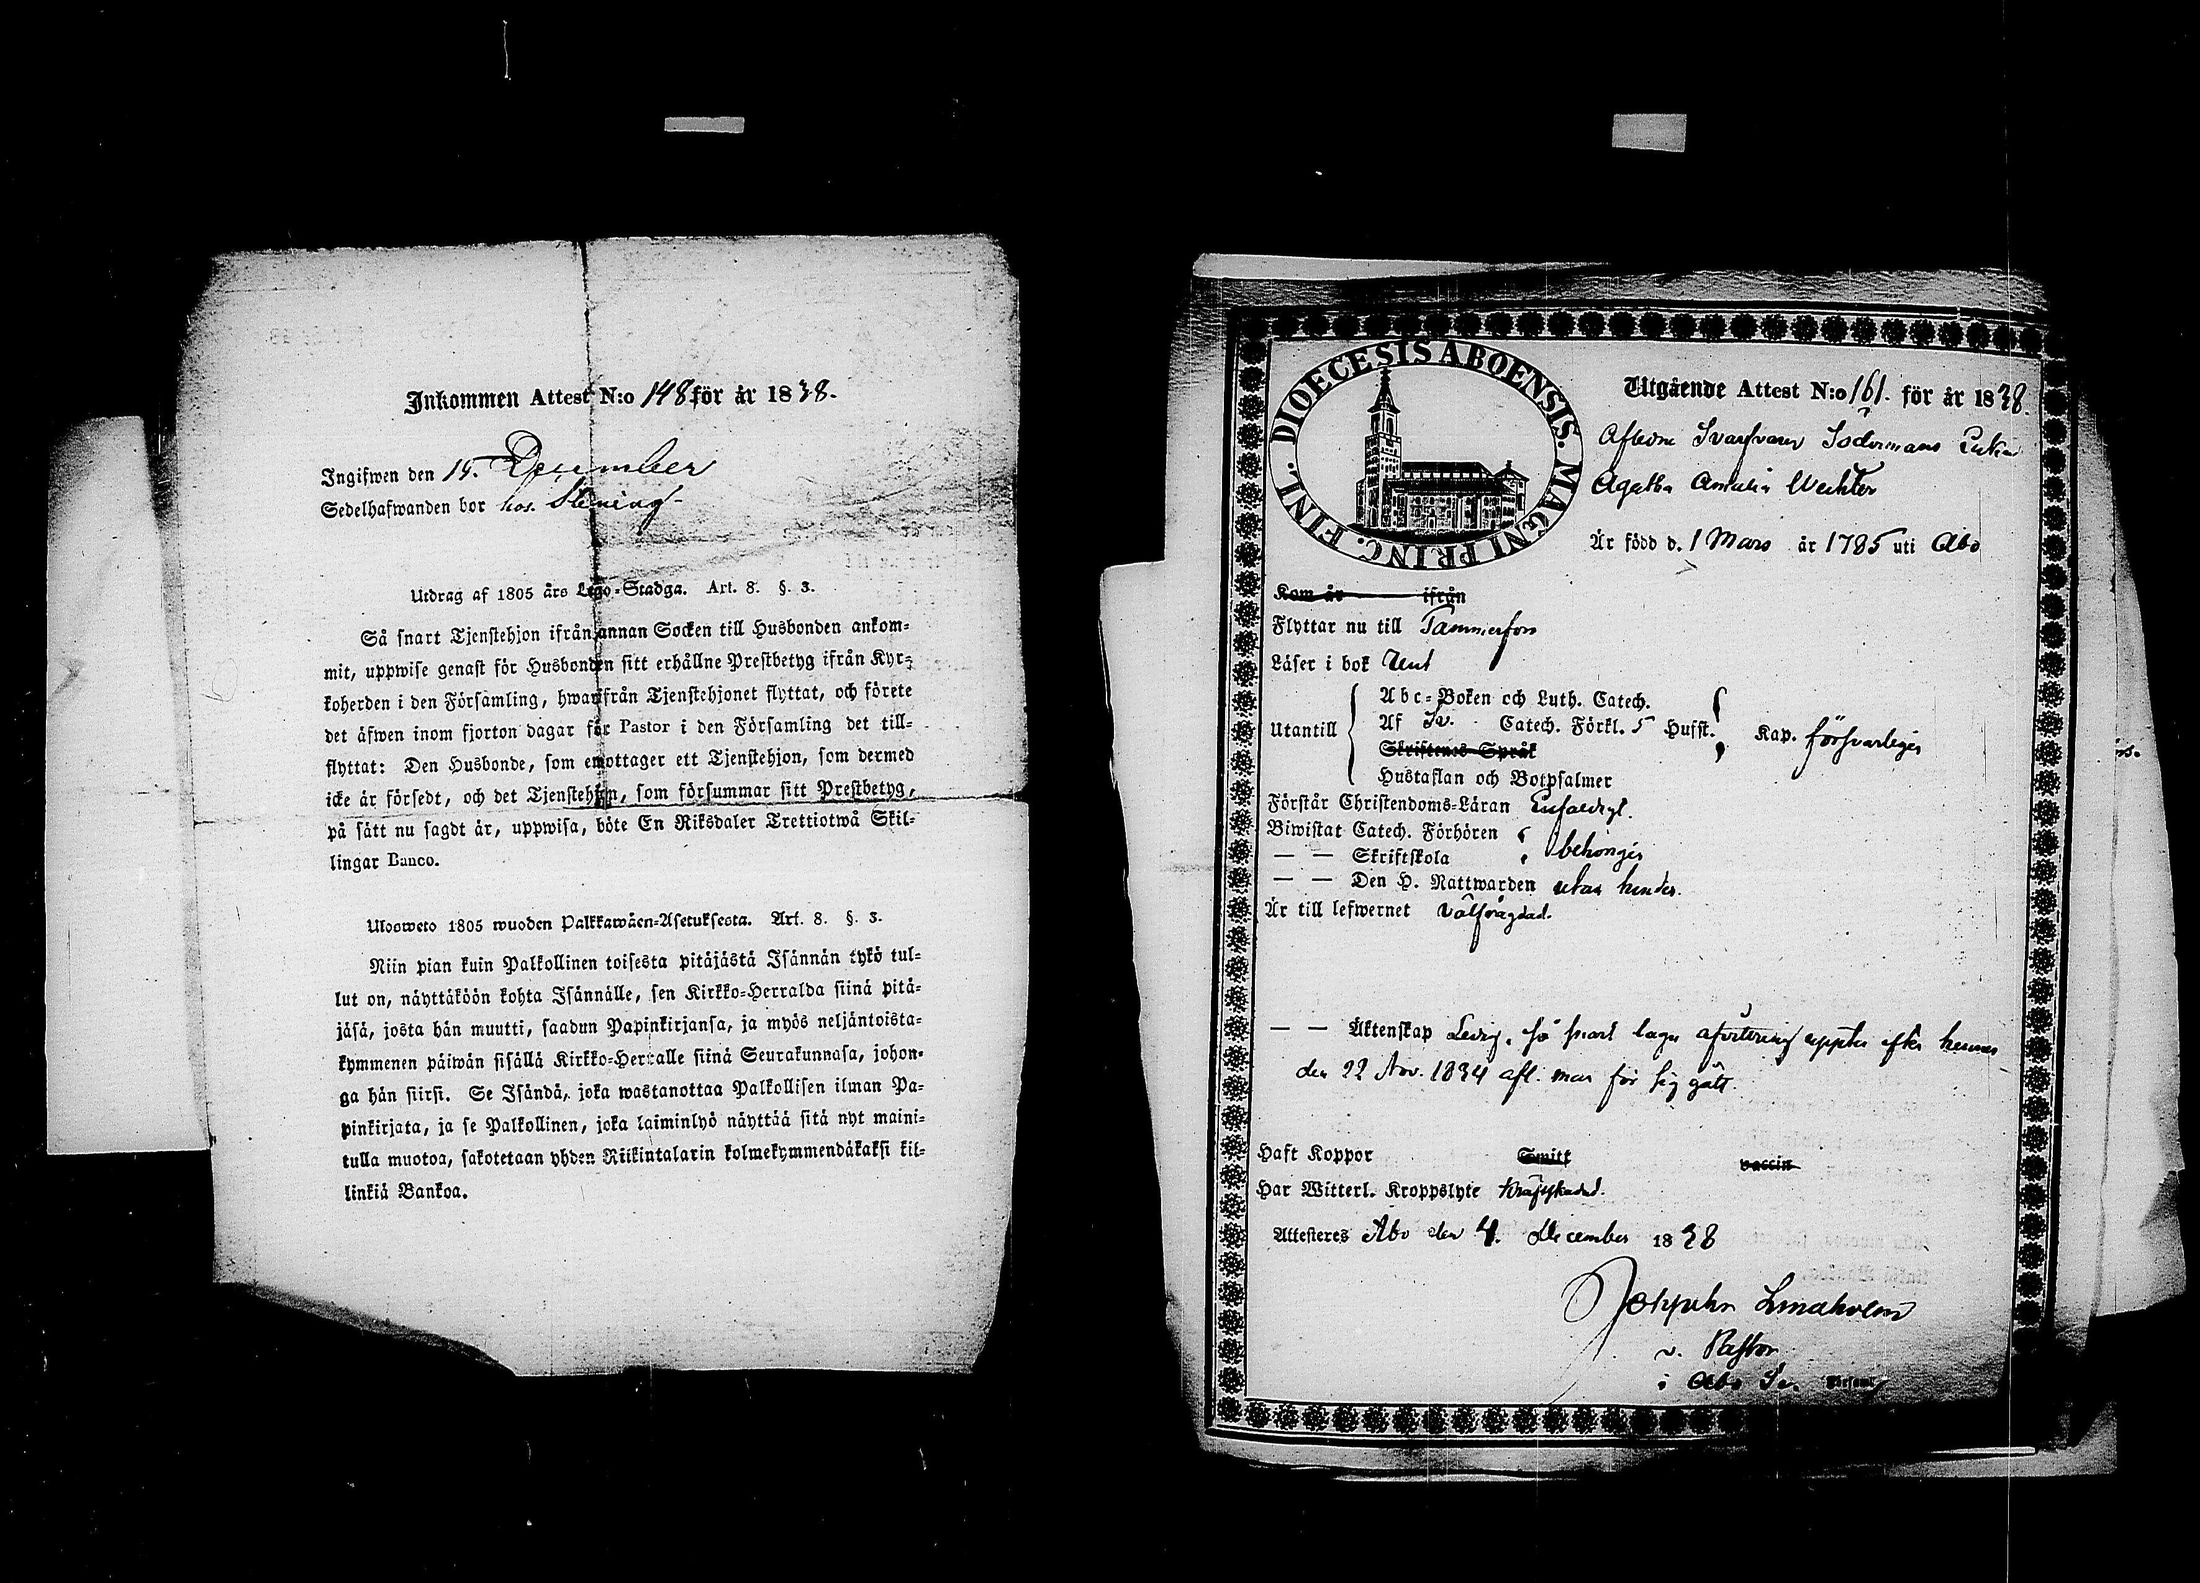 Inkommen Attest N:o 148 för år 1838.
Ingifwen den 19. December
Sedelhafwanden bor hos
Utdrag af 1805 års Lego-Stadga. Art. 8. §. 3.
Så snart Tjenstehjon ifrån annan Socken till Husbonden ankom-
mit, uppwise genast för Husbonden sitt erhållne Prestbetyg ifrån Kyr-
koherden i den Församling, hwarifrån Tjenstehjonet flyttat, och förete
det äfwen inom fjorton dagar för Pastor i den Församling det till-
flyttat: Den Husbonde, som emottager ett Tjenstehjon, som dermed
icke är försedt, och det Tjenstehjon, som försummar sitt Prestbetyg,
på sätt nu sagdt är, uppwisa, böte En Riksdaler Trettiotwå Skil-
lingar Banco.
Ulosweto 1805 wuoden Palkkawäen-Asetuksesta. Art. 8. §. 3.
Niin pian kuin Palkollinen toisesta pitäjästä Isännän tykö tul-
lut on, näyttäköön kohta Isännälle, sen Kirkko-Herralda siinä pitä-
jäsä, josta hän muutti, saadun Papinkirjansa, ja myös neljäntoista-
kymmenen päiwän sisällä Kirkko-Herralle siinä Seurakunnasa, johon-
ga hän siirsi. Se Isändä, joka wastanottaa Palkollisen ilman Pa-
pinkirjata, ja se Palkollinen, joka laiminlyö näyttää sitä nyt maini-
tulla muotoa, sakotetaan yhden Riikintalarin kolmekymmendäkaksi kil-
linkiä Bankoa.
DIOECESIS ABOENSIS. MAGNI PRINC. FINL.
Utgående Attest N:o 161. för år 1838.
Afledne Svarfvaren Södermans Enka
Agatha Amalia Wechter
Är född d. 1 Mars år 1785 uti Åbo
Kom år ifrån
Flyttar nu till Tammerfors
Läser i bok
Utantill
Abc-Boken och Luth. Catech.
Af Sv. Catech. Förkl. 5 Hufst. Kap. försvarligen
Skriftenes Språk
Hustaflan och Botpsalmer
Förstår Christendoms-Läran Enfaldigt.
Biwistat Catech. Förhören
— — Skriftskola behörigen
— — Den H. Nattwarden utan hinder.
Är till lefwernet välfrägdad.
— — Äktenskap Ledig, så snart laga afvittring uppter efter hennes
den 22 Nov. 1834 afl. man för sig gått.
Haft Koppor Smitt vaccin
Har Witterl. Kroppslyte
Attesteres Åbo den 4. December 1838
Lindholm
v. Pastor
i Åbo Sv. Församl